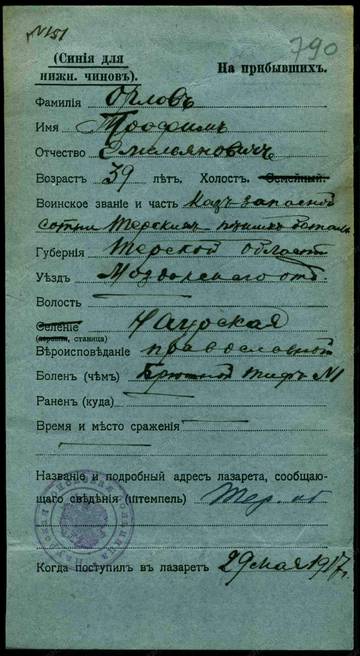 №151
790
(Синія для
нижн. чиновъ).
На прибывшихъ.
Фамилія Орловъ
Имя Трофимъ
Отчество Емельяновичъ
Возрастъ 39 лѣтъ. Холост. Семейный.
Воинское званіе и часть Каз. запасной
сотни Терских
Губернія Терской области
Уѣздъ Моздокскаго отд.
Волость
Селеніе Наурская
(деревня, станица)
Вѣроисповѣданіе православной
Боленъ (чѣмъ) Брюшной тифъ N1
Раненъ (куда)
Время и мѣсто сраженія
Названіе и подробный адресъ лазарета, сообщаю-
щаго свѣдѣнія (штемпель) Тер.
Когда поступилъ въ лазаретъ 29 мая 1917 г.